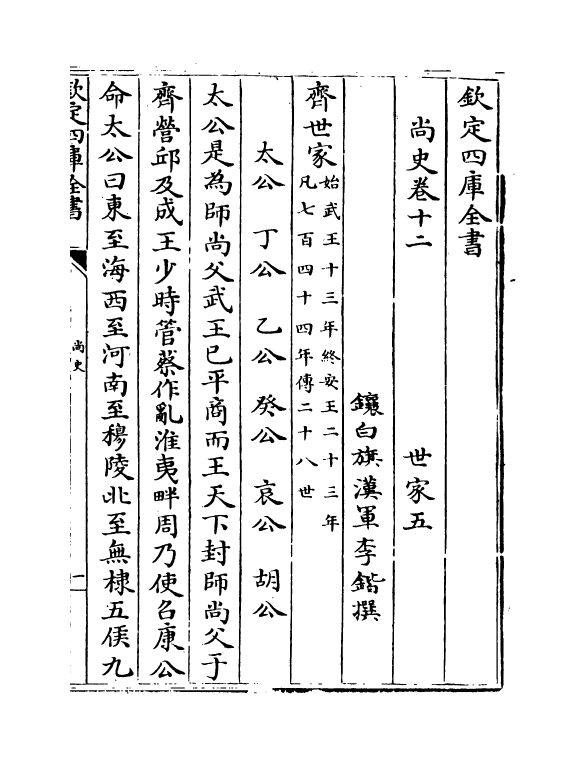 欽定四庫全書
尚史卷十二　世家五
鑲白旗漢軍李鍇撰
齊世家始武王十三年終安王二十三年
凡七百四十四年傳二十八世
太公　丁公　乙公　癸公　哀公　胡公
太公是為師尚父武王已平商而王天下封師尚父于
齊營邱及成王少時管蔡作亂淮夷畔周乃使召康公
命太公曰東至海西至河南至穆陵北至無棣五侯九
欽定四庫全書
尚史
一